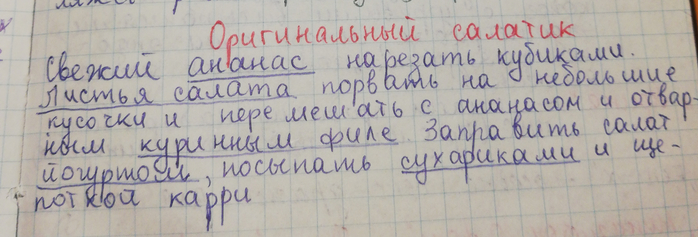 Оригинальный салатик
Свежий ананас нарезать кубиками.
Листья салата порвать на небольшие
кусочки и перемешать с ананасом и отвар-
ным куринным филе Заправить салат
йогуртом, посыпать сухариками и ще-
поткой карри